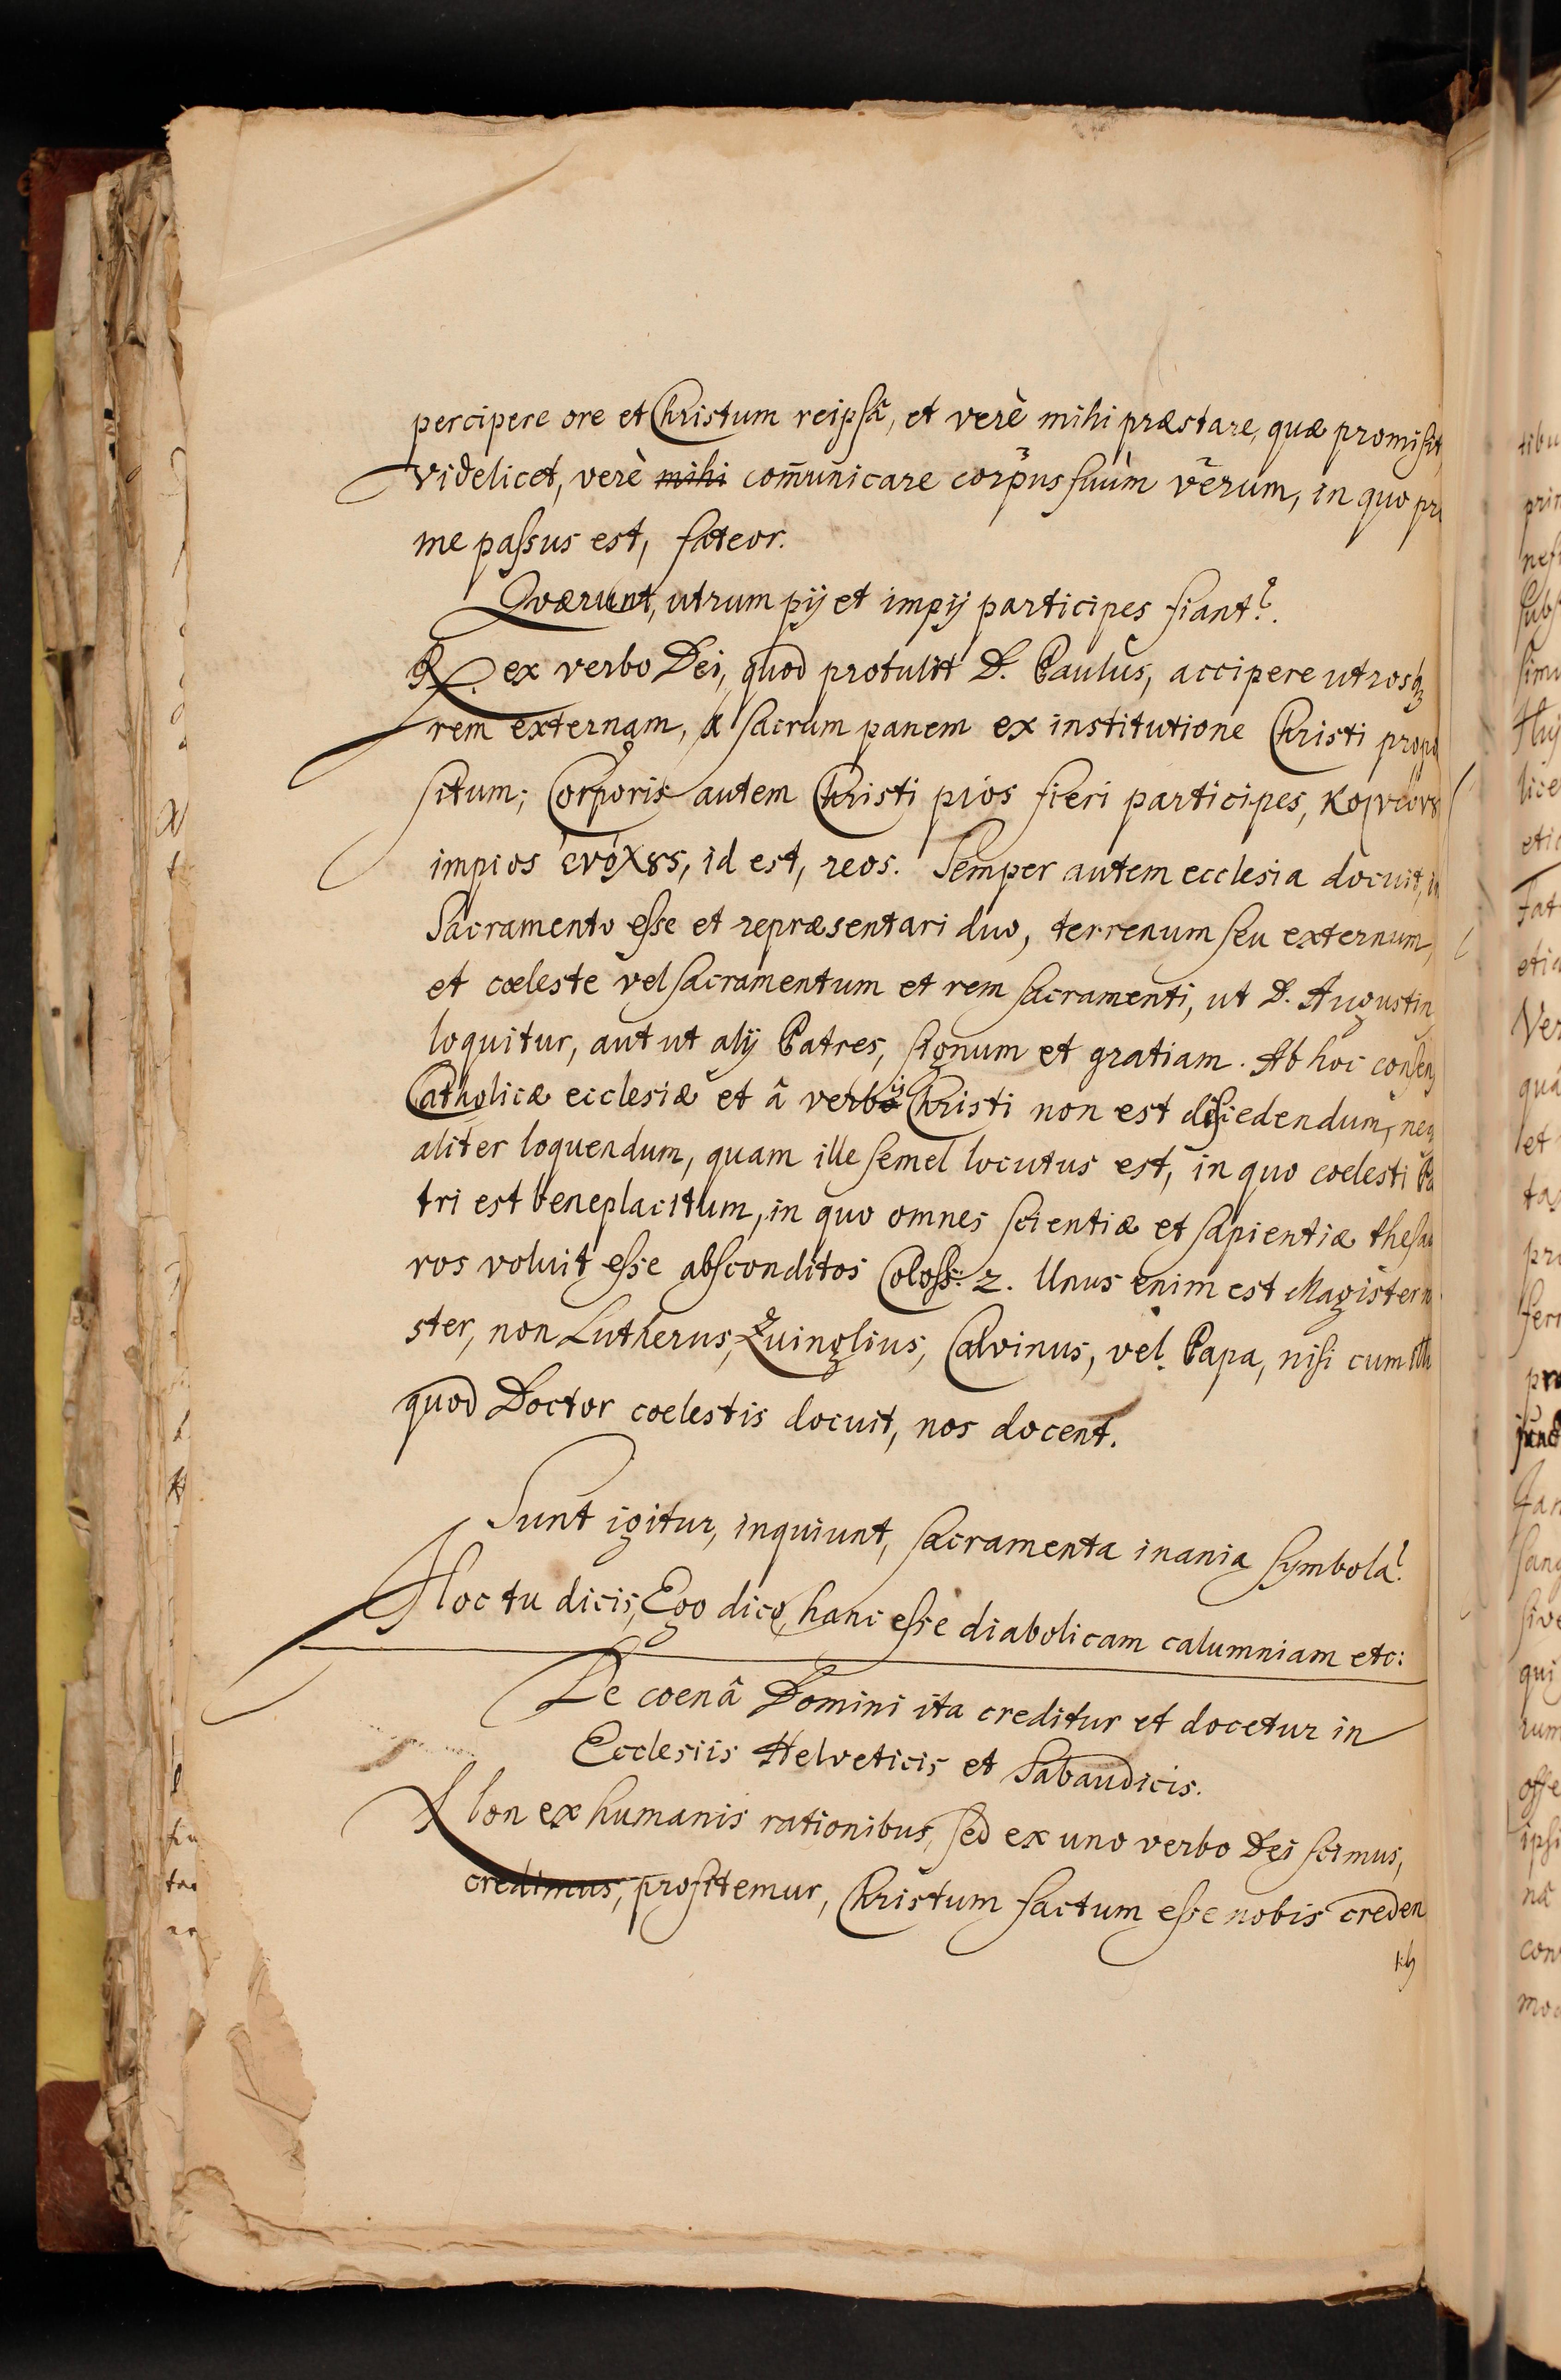 percipere ore et Christum reipsâ, et verè mihi præstare, quæ promisit,
videlicet, verè mihi com̃unicare corpus suum verum, in quo pr
me passus est, fateor.
Qværunt, utrum pij et impij participes fiant?
R. ex verbo Dei, quod protulit D. Paulus, accipere utrosq3
rem externam, & sacrum panem ex institutione Christi propo
situm; Corporis autem Christi pios fieri participes,
impios ἐνόχȣς, id est, reos. Semper autem ecclesia docuit, in
Sacramento esse et repræsentari duo, terrenum seu externum,
et cœleste vel sacramentum et rem sacramenti, ut D. Augustin
loquitur, aut ut alij Patres, signum et gratiam. Ab hoc consen
Catholicæ ecclesiæ et â verbis Christi non est discedendum, neq
aliter loquendum, quam ille semel locutus est, in quo coelesti Pa
tri est beneplacitum, in quo omnes scientiæ et sapientiæ thesau
ros voluit esse absconditos Coloss: 2. Unus enim est Magister n
ster, non Lutherus, Zuinglius, Calvinus, vel Papa, nisi cum
quod Doctor coelestis docuit, nos docent.
Sunt igitur, inquiunt, sacramenta inania symbola?
Hoc tu dicis, Ego dico, hanc esse diabolicam calumniam etc:
De coenâ Domini ita creditur et docetur in
Ecclesiis Helveticis et Sabaudicis.
Non ex humanis rationibus, sed ex uno verbo Dei scimus,
credimus, profitemur, Christum factum esse nobis creden